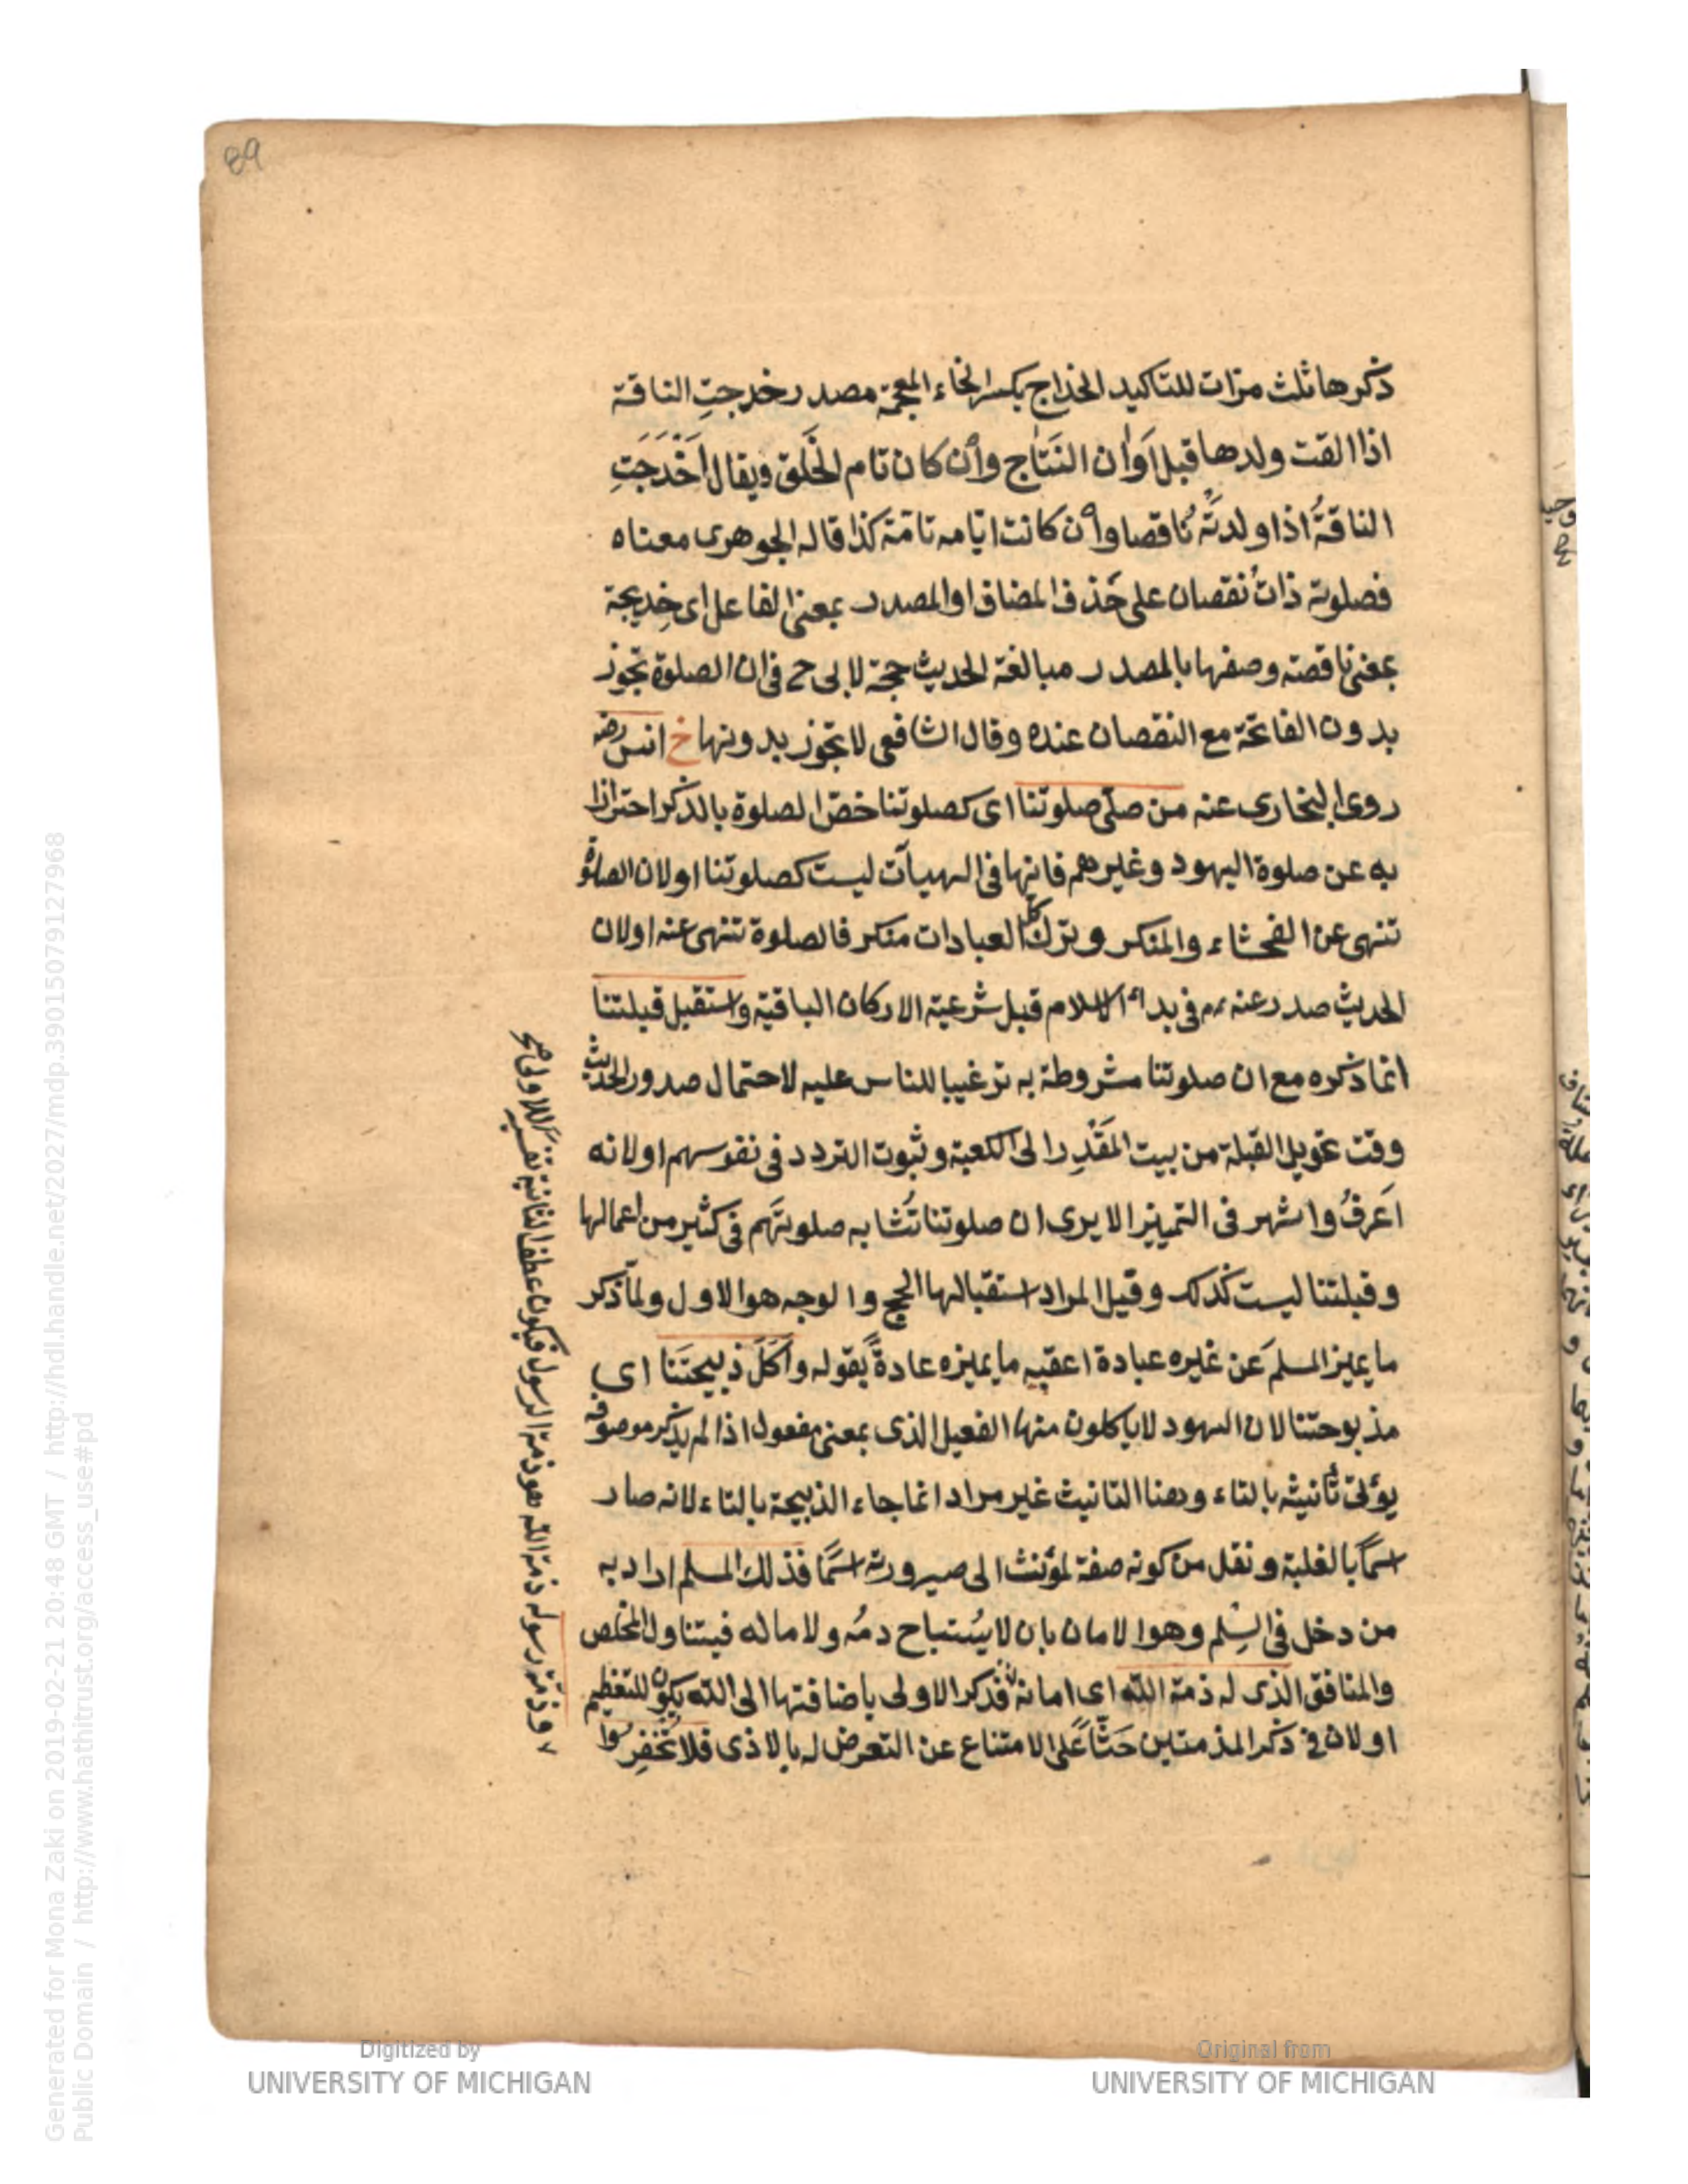 89
ذكرها ثلث مرّات للتاكيد الخداج بكسر الخاء المعجمة مصدر خدجتِ الناقة
اذا القت ولدها قبل اَوَان النَتاج واِن كان تام الخَلق ويقال اَخْدَجَتِ
الناقةُ اذا ولدتْه ناقصا واِن كانت ايّامه تامّة كذا قاله الجوهرى معناه
فصلوته ذاتُ نقصان على حَذف المضاف او المصدر بمعنى الفاعل اى خديجة
بمعنى ناقصة وصفها بالمصدر مبالغة الحديث حجة لابى ح فى ان الصلوة تجوز
بدون الفاتحة مع النقصان عنده وقال الشافعى لا تجوز بدونها خ انس رضه
روى البخارى عنه من صلّى صلوتنا اى كصلوتنا خصّ الصلوة بالذكر احترازا
به عن صلوة اليهود وغيرهم فانها فى الهيآت ليست كصلوتنا او لان الصلوة
تنهى عن الفحشاء والمنكر وترك كل العبادات منكر فالصلوة تنهى عنه او لان
الحديث صدر عنه م فى بداء الاسلام قبل شرعية الاركان الباقية واستقبل قبلتنا
انما ذكره مع ان صلوتنا مشروطة به ترغيبا للناس عليه لاحتمال صدور الحديث
وقت تحويل القبلة من بيت المَقْدِس الى الكعبة وثبوت التردد فى نفوسهم او لانه
اَعرفُ واشهر فى التمييز الا يرى ان صلوتنا تُشابه صلوتَهم فى كثير من اعمالها
وقبلتنا ليست كذلك وقيل المراد استقبالها الحج والوجه هو الاول ولمّا ذكر
ما يميز المسلمَ عن غيره عبادة اعقبه ما يميزه عادةً بقوله واَكَلَ ذبيحتَنا اى
مذبوحتنا لان اليهود لا ياكلون منها الفعيل الذى بمعنى مفعول اذا لم يذكر موصوفه
يؤتى تأنيثه بالتاء وهنا التانيث غير مراد انما جاء الذبيحة بالتاء لانه صار
اسمًا بالغلبة ونقل من كونه صفة لمؤنث الى صيرورته اسمًا فذلك المسلم اراد به
من دخل فى السِلم وهو الامان بان لا يُستباح دمُه ولا ماله فيتناول المخلص
والمنافق الذى له ذمة الله اى امانه فذكر الاولى باضافتها الى الله يكون للتعظيم
او لان فى ذكر الذمتين حَثّاً على الامتناع عن التعرض له بالاذى فلا تُخفِروا
وذمة رسوله ذمة الله هو ذمة الرسول فيكون عطف الثانية تفسير للاولى صح
Generated for Mona Zaki on 2019-02-21 20:48 GMT / http://hdl.handle.net/2027/mdp.39015079127968
Public Domain / http://www.hathitrust.org/access_use#pd
Digitized by
UNIVERSITY OF MICHIGAN
Original from
UNIVERSITY OF MICHIGAN